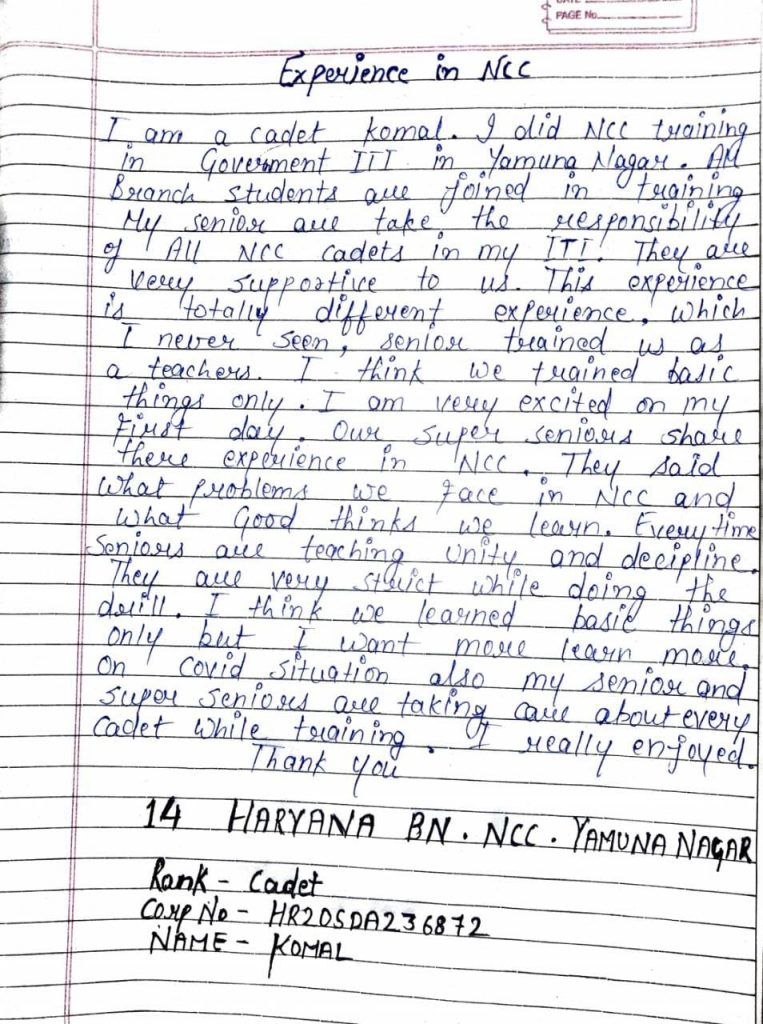 PAGE No.
Experience in NCC
I am a cadet Komal. I did NCC training
in Goverment III in Yamuna Nagar. All
Branch students are joined in training
My senior are take the responsibility
of All NCC cadets in my ITI. They are
very supportive to us. This experience
is totally different experience, which
I never seen, senior trained us as
a teachers. I think we trained basic
things only. I am very excited on my
First day. Our super seniors share
there experience in NCC. They said
what problems we face in NCC and
what Good thinks we learn. Every time
Seniors are teaching unity and decipline.
They are very strict while doing the
drill. I think we learned basic things
only but I want more learn more.
On covid situation also my senior and
super seniors are taking care about every
cadet while training. I really enjoyed.
Thank you
14 HARYANA BN. NCC. YAMUNA NAGAR
Rank - Cadet
Corp No - HR20SDA236872
NAME - KOMAL